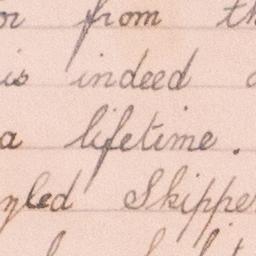 or from th
is indeed
a lifetime.
gled Skipper